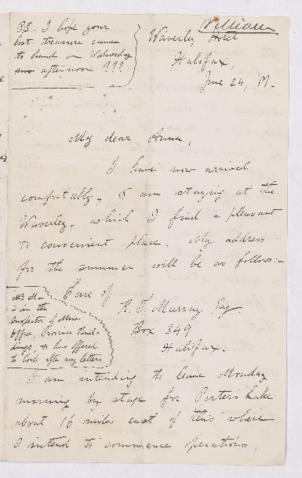 William
P.S. I hope your
lost treasure came
to hand on Wednesday
afternoon ???
Waverley Hotel
Halifax,
June 24, 
My dear Anna,
I have now arrived
comfortably, & am staying at the
Waverley, which I find a pleasant
& convenient place. My address
for the summer will be as follows:-
Care of
H. T. Murray Esq
Box 349
Halifax.
Mr. M.
is in the
Inspector of Mines
Office, Provin. Build-
ings, & has offered
to look after my letters
I am intending to leave Monday
morning by stage for Porters Lake
about 16 miles east of this where
I intend to commence operations,